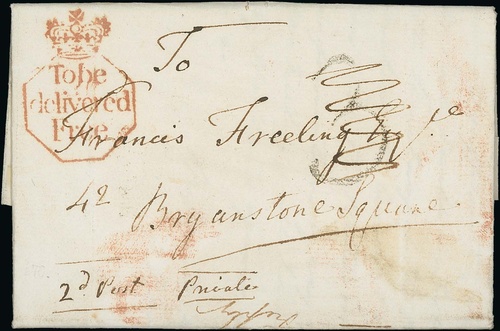 To be
delivered
Free
To
Francis Freeling
42
Bryanstone Square
2d Post Private